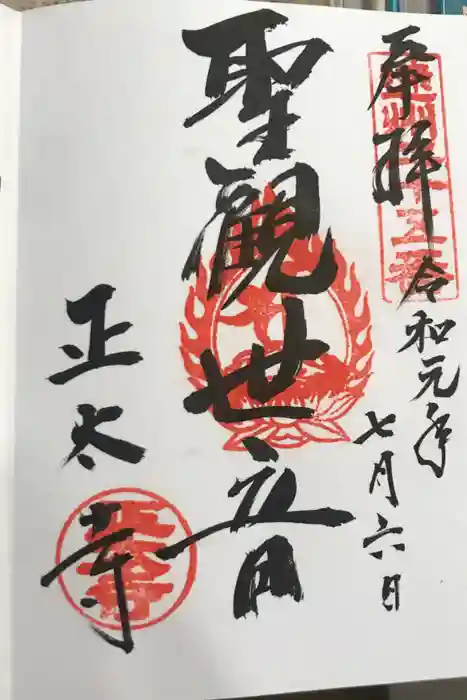 奉拝
令和元年
七月六日
聖観世音
正太寺
正太寺